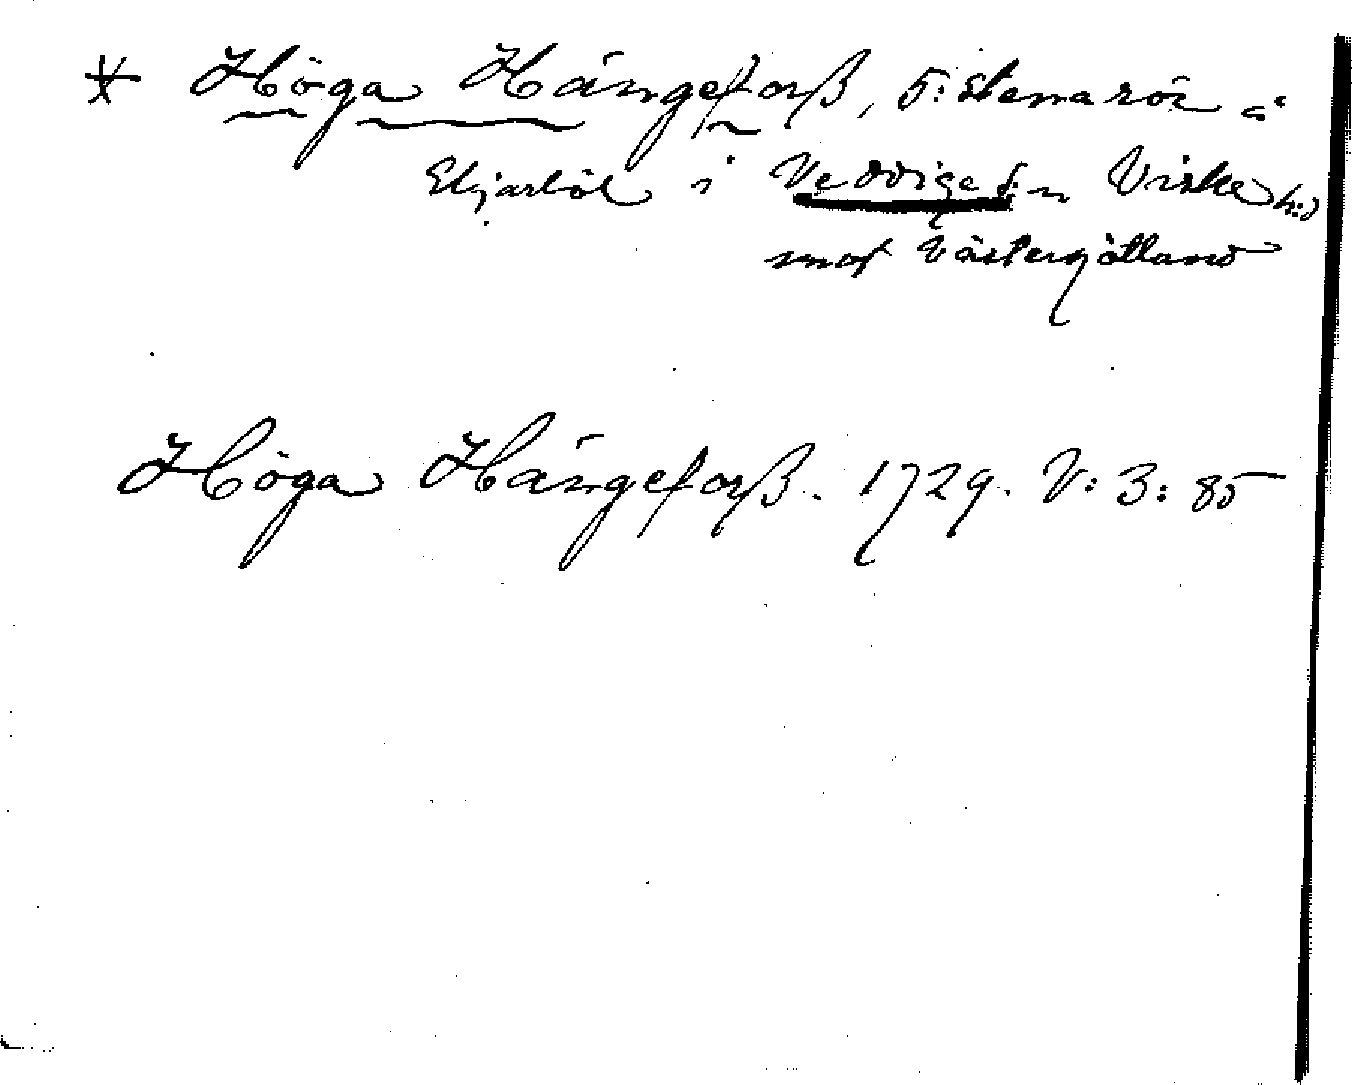 * Höga Hängeforß, 5: stenarör å
Ekjarböl i Veddige s:n Viske h:d
mot Västergötland
Höga Hängeforß. 1729. V: 3: 85